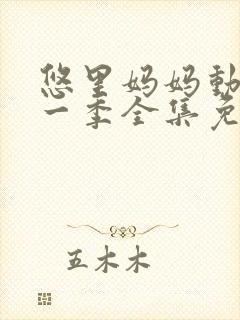 悠里妈妈動
一季全集免
五木木